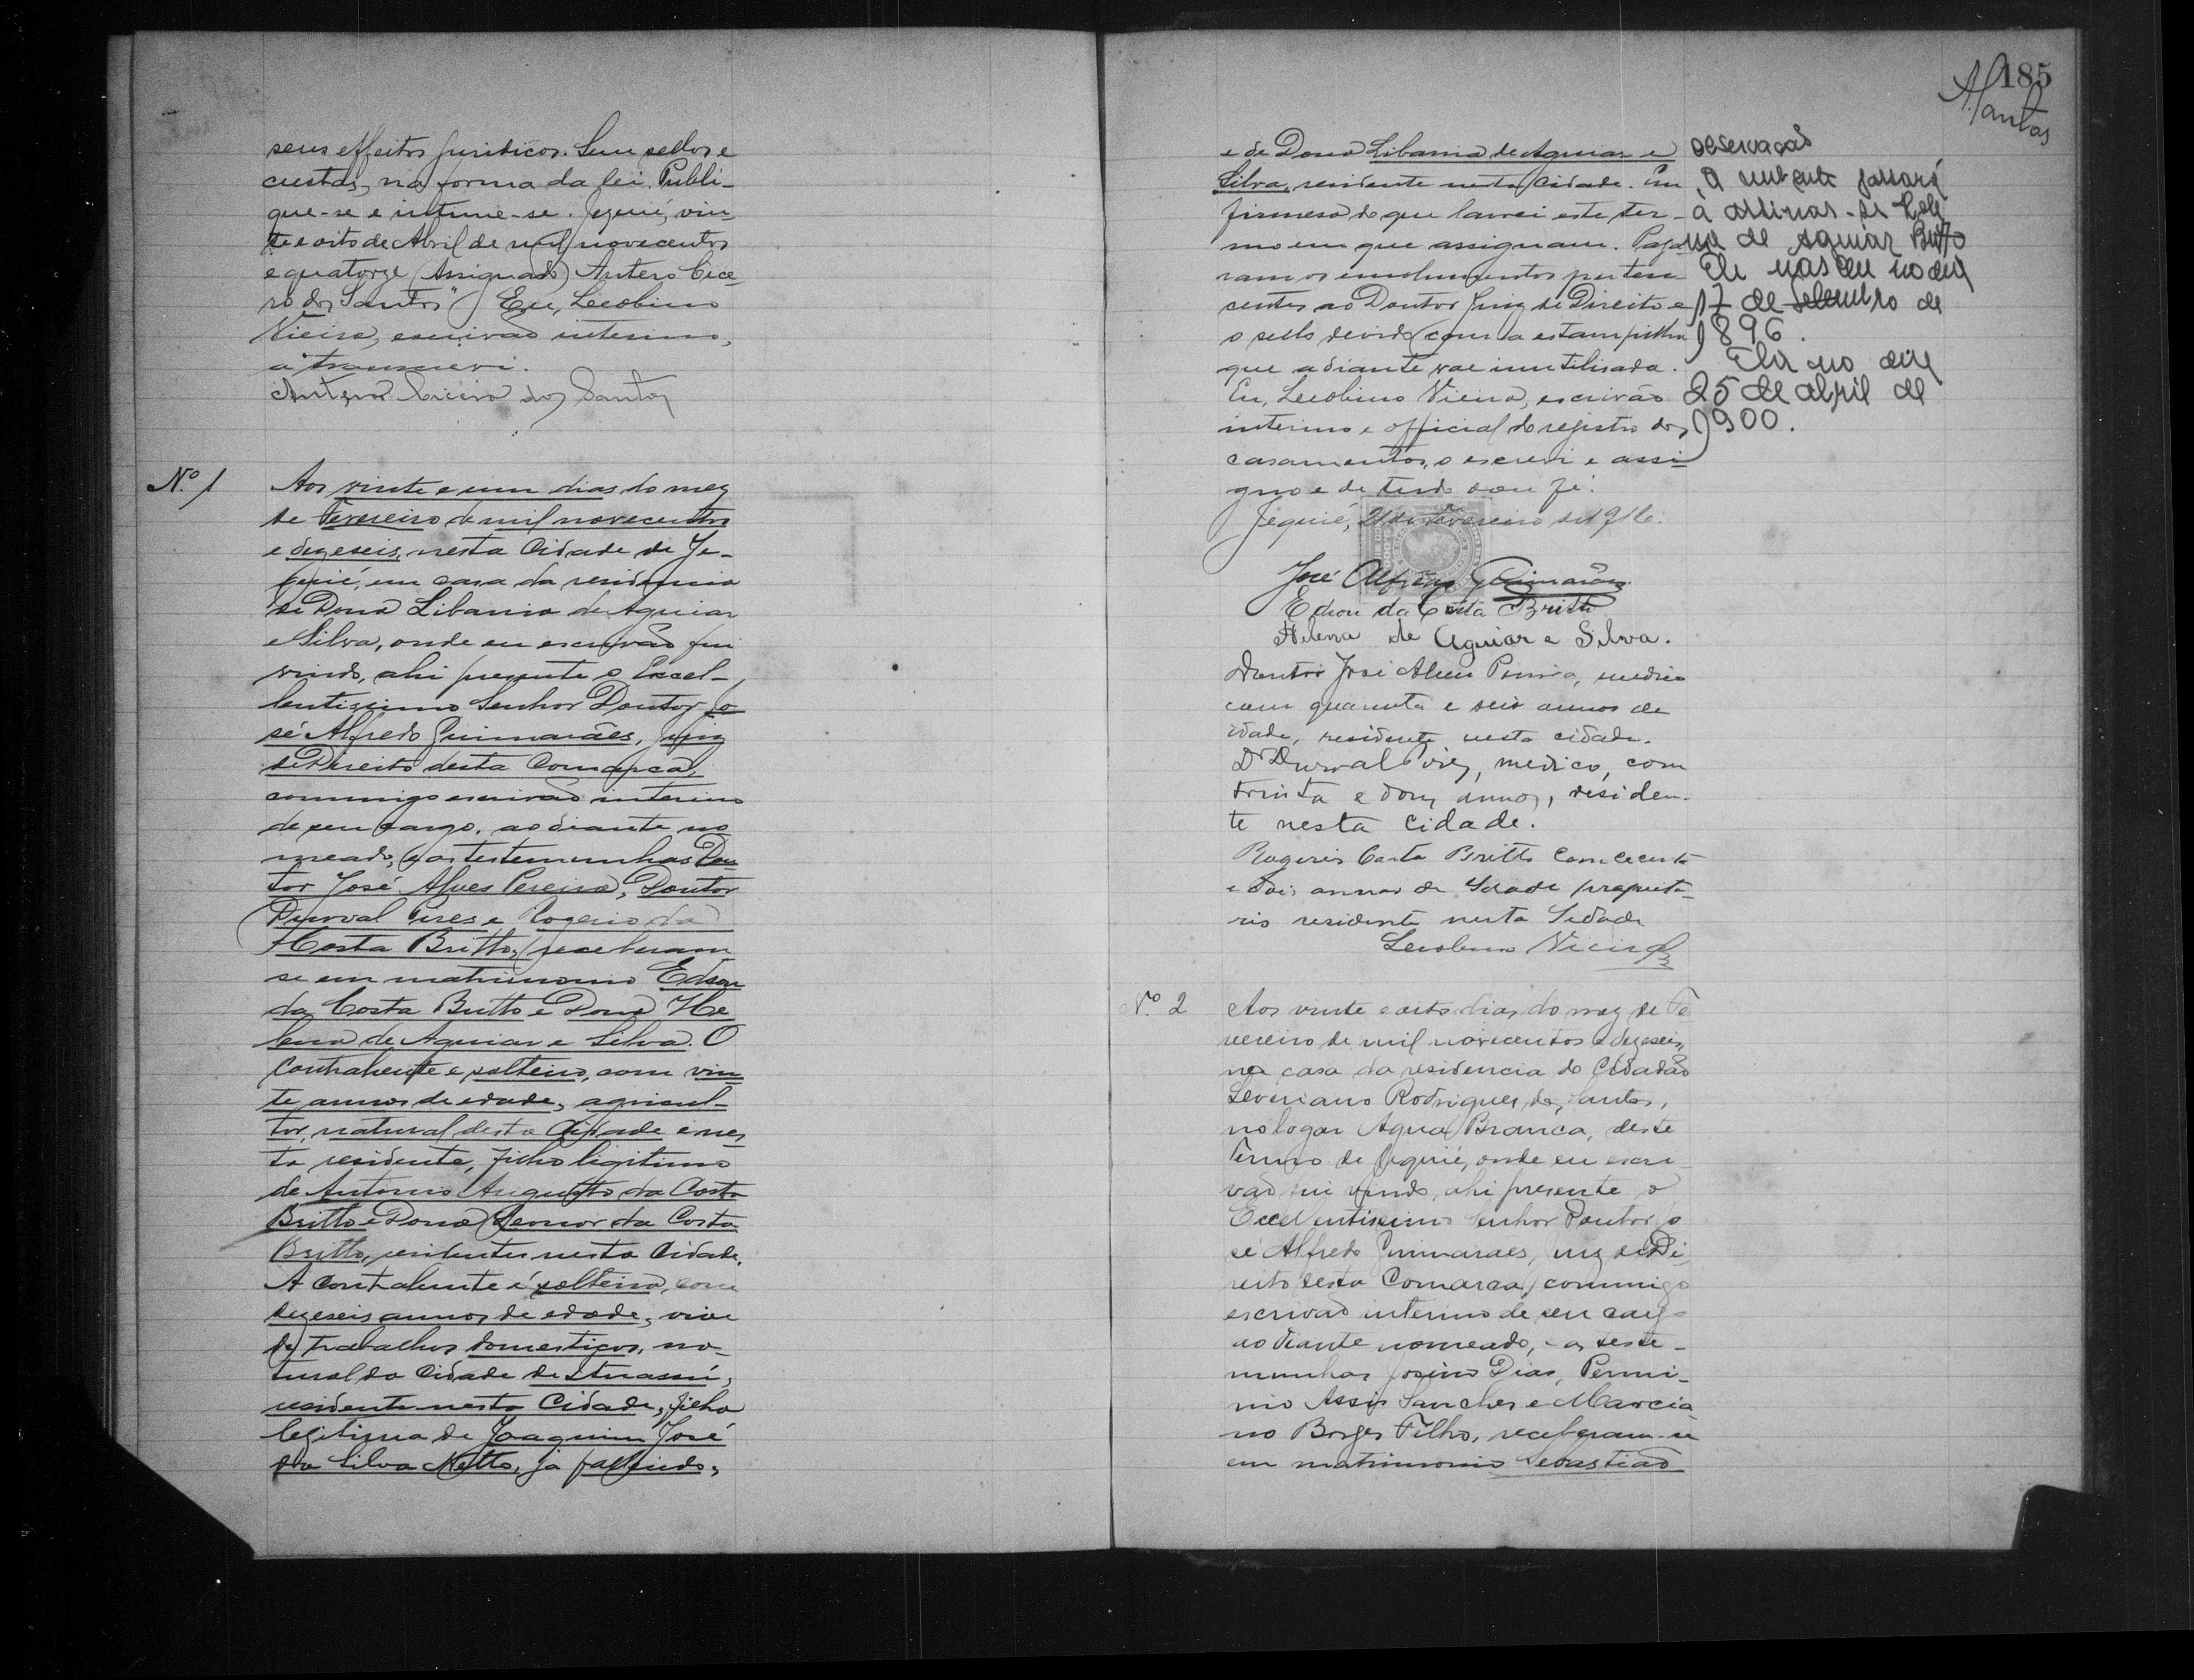 seus effeitos juridicos. Sem sellos e
custas, na forma da lei. Publi-
que-se e intime-se. Jequié, vin
te e oito de Abril de mil novecentos
e quatorze (Assignado) Antero Cice-
ro dos Santos" Eu, Lecobino
Vieira, escrivão interino,
a transcrevi.
Antero Cicero dos Santos
Nº 1
Aos vinte e um dias do mez
de Fevereiro de mil novecentos
e dezeseis, nesta Cidade de Je-
quié, em casa da residencia
de Dona Libania de Aguiar
e Silva, onde eu escrivão fui
vindo, ahi presente o Excel-
lentissimo Senhor Doutor Jo
sé Alfredo Guimarães, Juiz
de Direito desta Comarca,
commigo escrivão interino
de seu cargo, ao diante no
meado, e as testemunhas Dou
tor José Alves Pereira, Doutor
Durval Pires e Rogerio da
Costa Britto, receberam
se em matrimonio Edson
da Costa Britto e Dona He
lena de Aguiar e Silva. O
Contrahente é solteiro, com vin
te annos de edade, agricul-
tor, natural desta Cidade e nes
ta residente, filho legitimo
de Antonio Augusto da Costa
Britto e Dona Leonor da Costa
Britto, residentes nesta Cidade.
A Contrahente é solteira, com
dezeseis annos de edade, vive
de trabalhos domesticos, na-
tural da Cidade de Ituassú,
residente nesta Cidade, filha
legitima de Joaquim José
da Silva Netto, já fallecido,
185
A. Santos
e de Dona Libania de Aguiar e
Silva, residente nesta Cidade. Em
firmesa do que lavrei este ter-
mo em que assignam. Paga
ram os emolumentos perten
centes ao Doutor Juiz de Direito e
o sello devido com a estampilha
que adiante vae inutilisada.
Eu, Lecobino Vieira, escrivão
interino e official do registro dos
casamentos, o escrevi e assi-
gno e de tudo dou fé.
Jequié, 21 de Fevereiro de 1916.
observação
A nubente passará
à assinar-se Hele
na de Aguiar Britto
Ele nasceu no dia
17 de setembro de
1896.
Ela no dia
25 de abril de
1900.
José Alfredo Guimarães
Edson da Costa Britto
Helena de Aguiar e Silva.
Doutor José Alves Pereira, medico
com quarenta e seis annos de
idade, residente nesta cidade.
Dr Durval Pires, medico, com
trinta e dous annos, residen-
te nesta Cidade.
Rogerio Costa Britto com
e dois annos de Idade propieta-
rio residente nesta Sidade
Lecobino Vieira
Nº 2
Aos vinte e oito dias do mez de Fe
vereiro de mil novecentos e dezeseis,
na casa da residencia do Cidadão
Severiano Rodrigues dos Santos,
no logar Agua Branca, deste
Termo de Jequié, onde eu escri
vão fui vindo, ahi presente o
Excellentissimo Senhor Doutor Jo
sé Alfredo Guimarães, Juiz de Di
reito desta Comarca, commigo
escrivão interino de seu cargo
ao diante nomeado, e as teste-
munhas Josino Dias, Permi-
nio Assis Sanches e Marcia
no Borges Filho, receberam-se
em matrimonio Sebastião